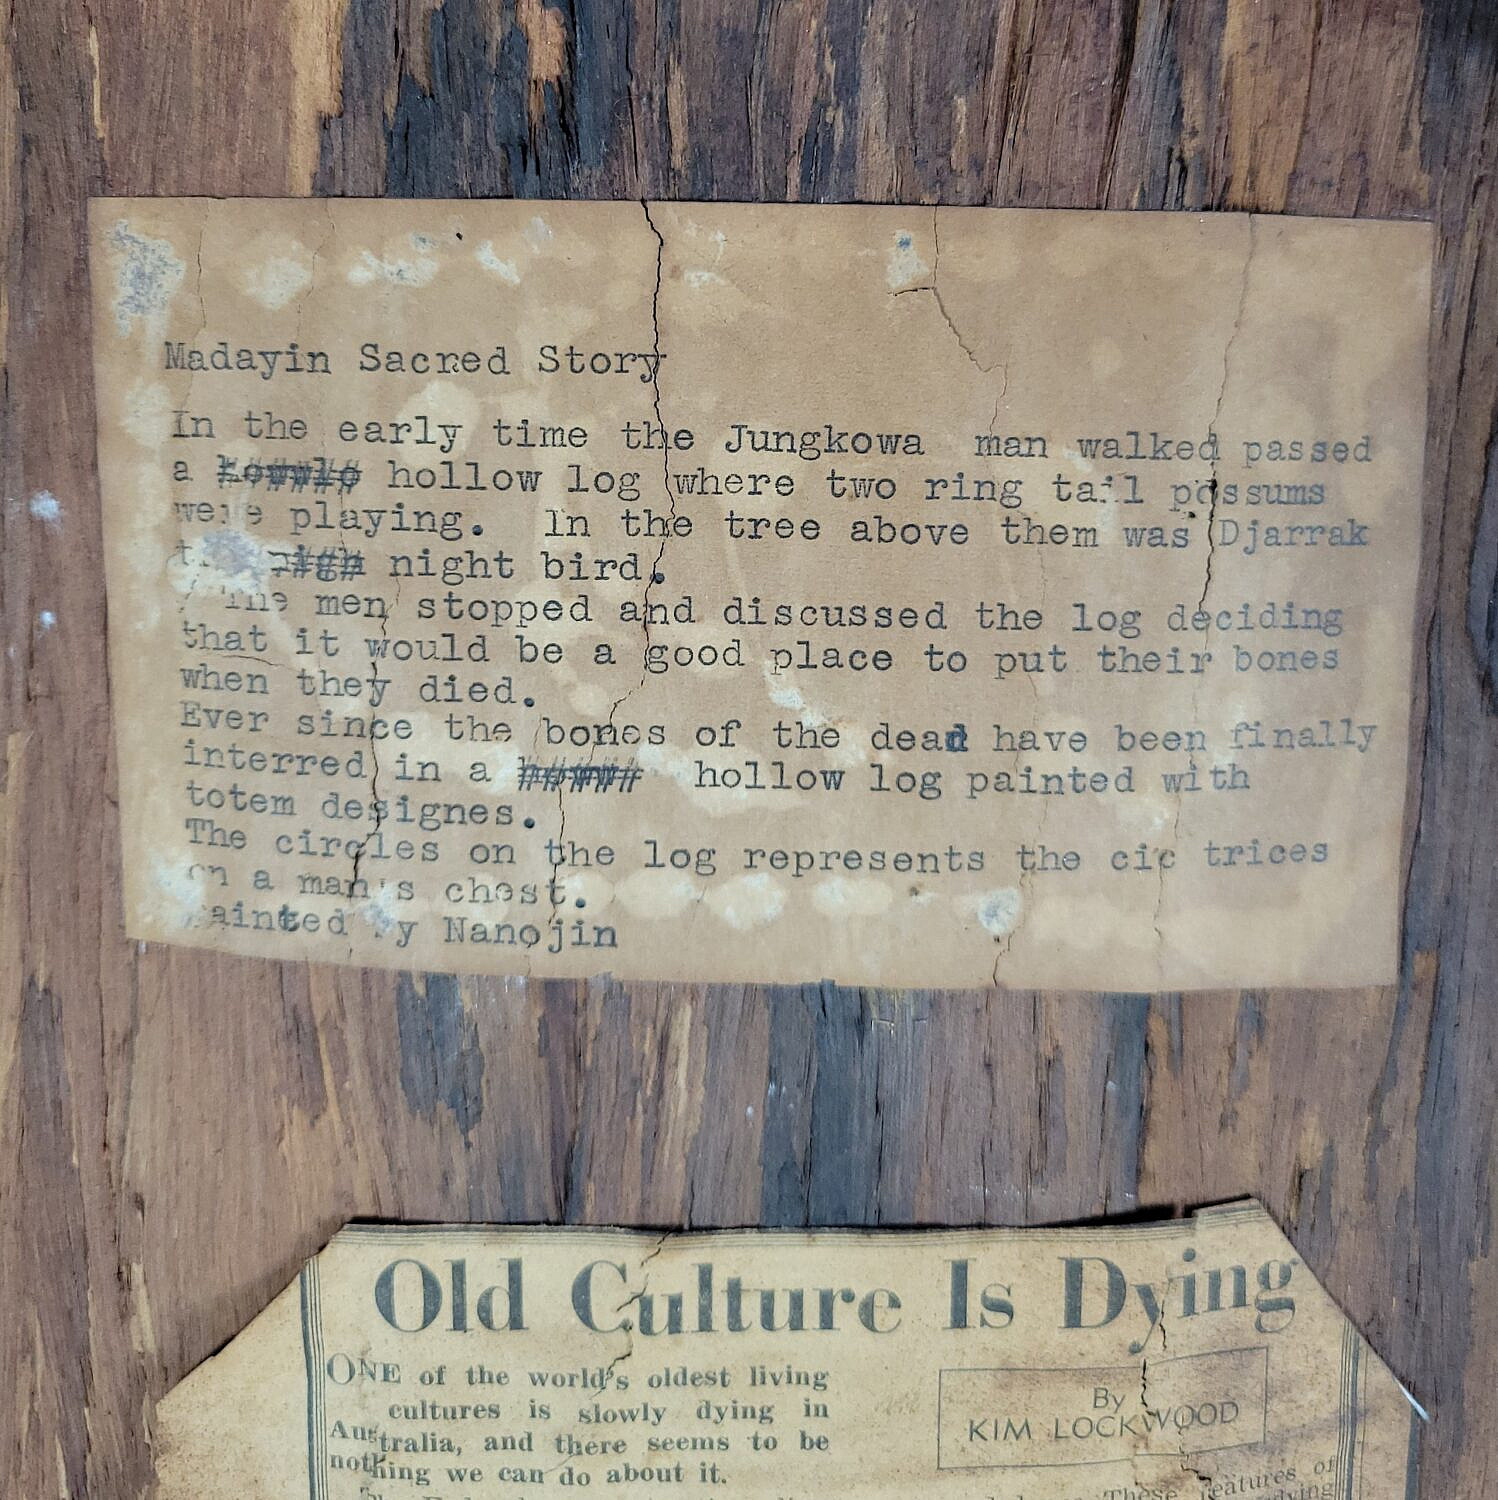 Madayin Sacred Story
In the early time the Jungkowa man walked passed
a hollow log where two ring tail possums
were playing. In the tree above them was Djarrak
night bird.
The men stopped and discussed the log deciding
that it would be a good place to put their bones
when they died.
Ever since the bones of the dead have been finally
interred in a hollow log painted with
totem designes.
The circles on the log represents the cic trices
on a man's chest.
ainted by Nanojin
Old Culture Is Dying
ONE of the world's oldest living
cultures is slowly dying in
Australia, and there seems to be
nothing we can do about it.
By
KIM LOCKWOOD
These features of
dying